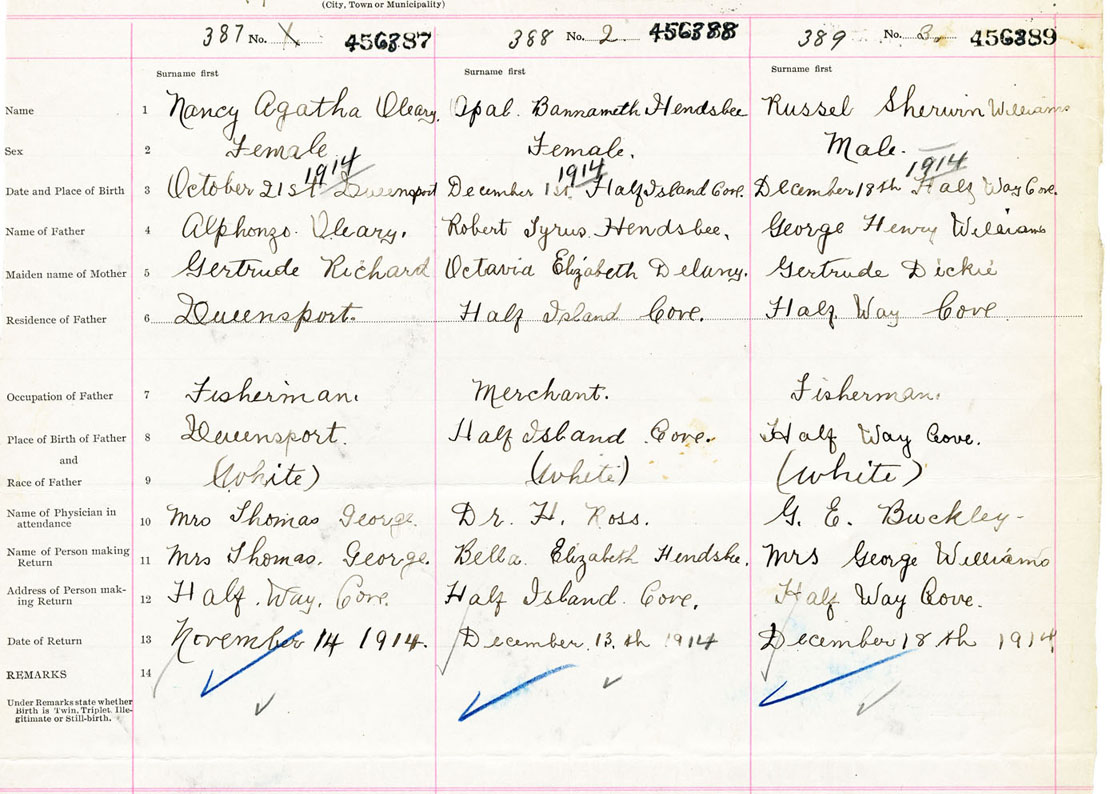 (City, Town or Municipality)
387 No. 1. 456387 388 No. 2. 456388 389 No. 3. 456389
Surname first Surname first Surname first
Name 1 Nancy Agatha Oleary. Opal. Bannameth Hendsbee Russel Sherwin Williams
Sex 2 Female. Female. Male.
1914 1914 1914
Date and Place of Birth 3 October 21st Queensport December 1st. Half Island Cove. December 18th Half Way Cove.
Name of Father 4 Alphonzo. Oleary. Robert Tyrus. Hendsbee. George Henry Williams
Maiden name of Mother 5 Gertrude Richard Octavia Elizabeth Delany. Gertrude Dickie
Residence of Father 6 Queensport. Half Island Cove. Half Way Cove
Occupation of Father 7 Fisherman. Merchant. Fisherman.
Place of Birth of Father 8 Queensport. Half Island Cove. Half Way Cove.
and
Race of Father 9 (White) (White) (White)
Name of Physician in
attendance 10 Mrs Thomas George. Dr. H. Ross. G. E. Buckley-
Name of Person making
Return 11 Mrs Thomas. George. Bella Elizabeth Hendsbee. Mrs George Williams
Address of Person mak-
ing Return 12 Half. Way. Cove. Half Island. Cove. Half Way Cove.
Date of Return 13 November 14 1914. December. 13. th 1914 December 18 th 1914
REMARKS 14
Under Remarks state whether
Birth is Twin, Triplet, Ille-
gitimate or Still-birth.